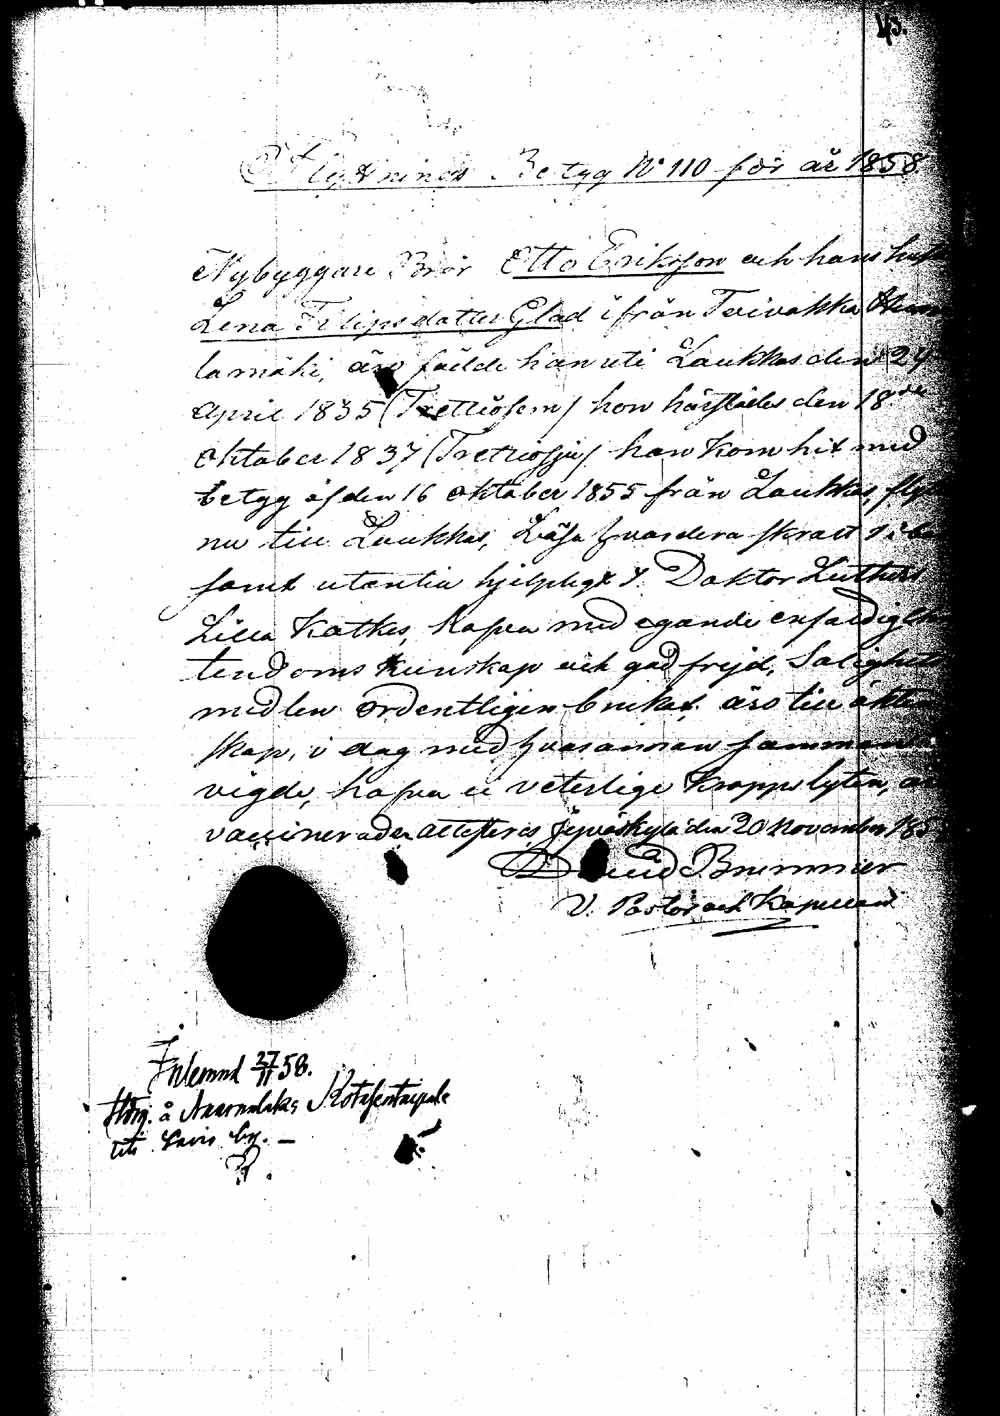 43.
Flyttnings Betyg No 110 för år 1858
Nybyggare Bror Otto Eriksson och hans hust
Lena Filipsdatter Glad ifrån Toivakka
lamäki, äro födde han uti Laukkas den 24
April 1835 (Trettiofem) hon härstädes den 18de
Oktober 1837 (Trettiosju) han kom hit med
betyg af den 16 Oktober 1855 från Laukkas, fly
nu till Laukkas, Läsa hvardera svart i bo
samt utantill hjelpligt D. Doktor Luthers
Lilla Katkes, hafva med egande enfaldig Chri
tendoms kunskap och god frejd, Salighets
medlen ordentligen brukat, äro till äkten
skap, i dag med hvarannan samman
vigde, hafva ei veterlige kroppslyten, är
vaccinerade attesteras Jyväskylä den 20 November 185
David Brummer
V. Pastor och Kapellan
Inlemnd 27/11 58.
å
uti Savio by. —